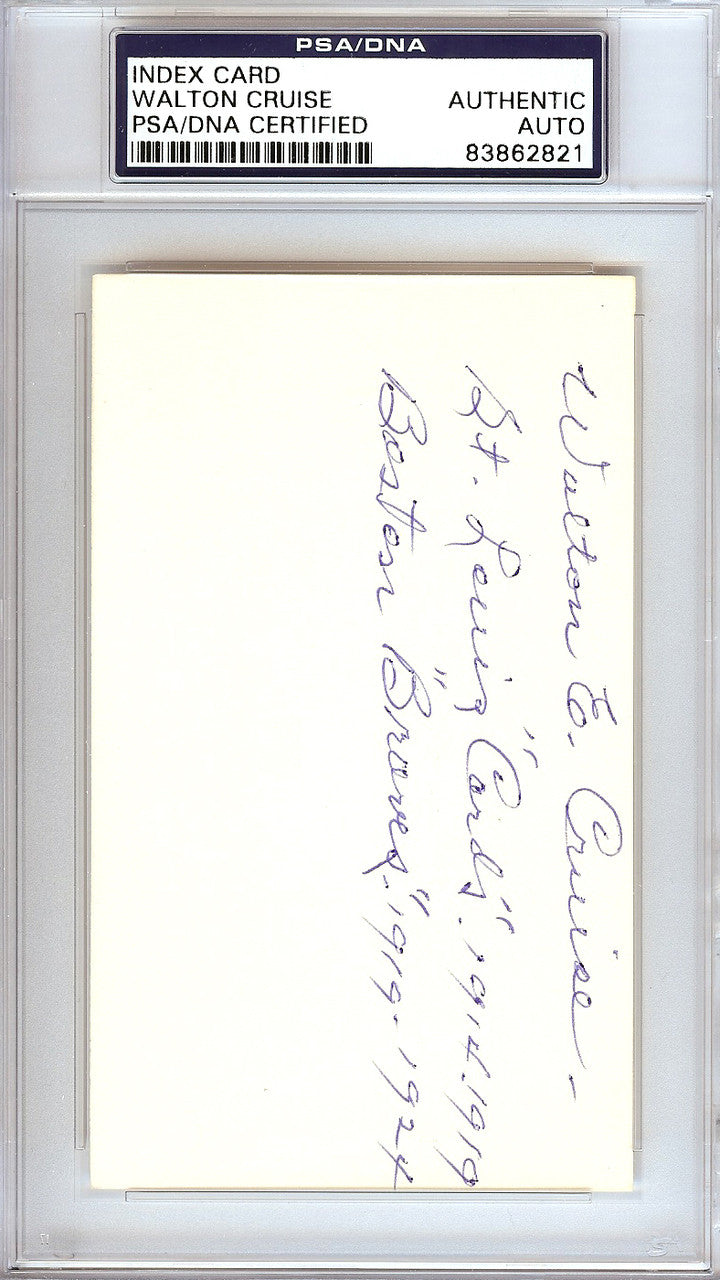 PSA/DNA
INDEX CARD
WALTON CRUISE
PSA/DNA CERTIFIED
AUTHENTIC
AUTO
83862821
Walton E. Cruise.-
St. Louis "Cards". 1914.1919
Boston "Braves". 1919. 1924